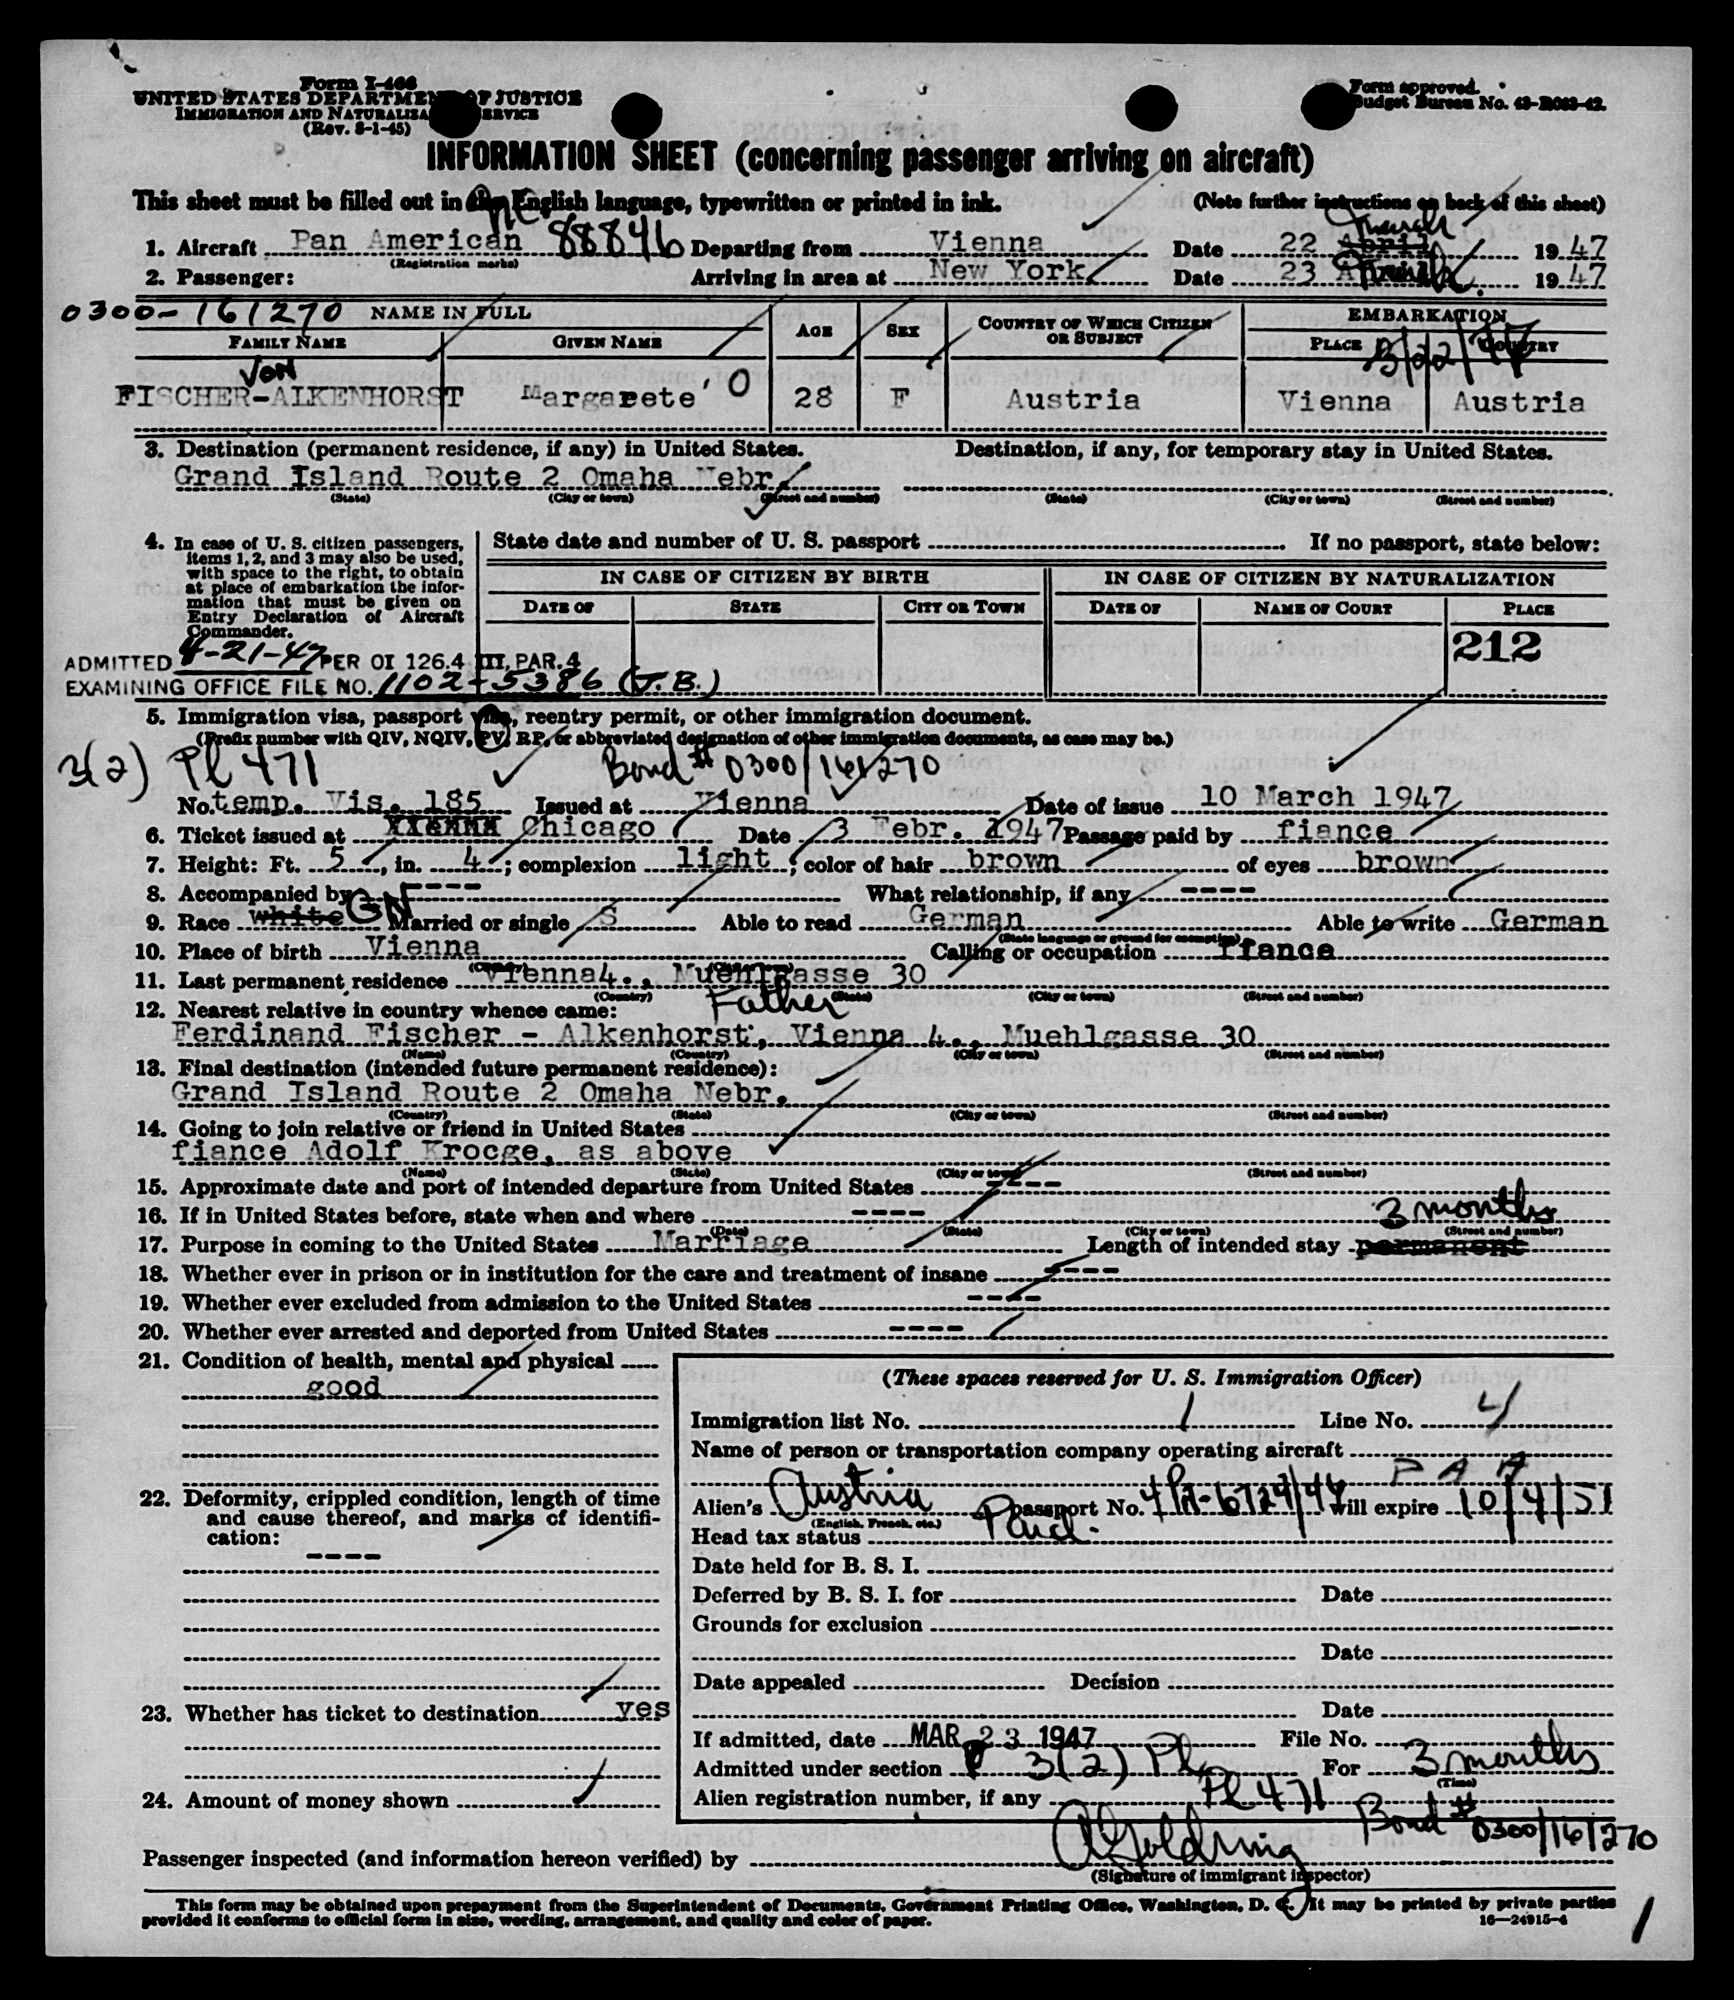 Form I-466
UNITED STATES DEPARTMENT OF JUSTICE
IMMIGRATION AND NATURALIZATION SERVICE
(Rev. 8-1-45)
Form approved.
Budget Bureau No. 43-R083-42.
INFORMATION SHEET (concerning passenger arriving on aircraft)
This sheet must be filled out in the English language, typewritten or printed in ink. (Note further instructions on back of this sheet)
NC March
1. Aircraft Pan American 88846 Departing from Vienna Date 22 April 1947
(Registration marks)
2. Passenger: Arriving in area at New York Date 23 March 1947
0300-161270 NAME IN FULL AGE SEX COUNTRY OF WHICH CITIZEN OR SUBJECT EMBARKATION
FAMILY NAME GIVEN NAME PLACE COUNTRY
3/22/47
von
FISCHER-ALKENHORST Margarete O 28 F Austria Vienna Austria
3. Destination (permanent residence, if any) in United States. Destination, if any, for temporary stay in United States.
Grand Island Route 2 Omaha Nebr.
(State) (City or town) (Street and number) (State) (City or town) (Street and number)
4. In case of U. S. citizen passengers, items 1, 2, and 3 may also be used, with space to the right, to obtain at place of embarkation the information that must be given on Entry Declaration of Aircraft Commander.
State date and number of U. S. passport If no passport, state below:
IN CASE OF CITIZEN BY BIRTH IN CASE OF CITIZEN BY NATURALIZATION
DATE OF STATE CITY OR TOWN DATE OF NAME OF COURT PLACE
212
ADMITTED 4-21-47 PER OI 126.4 III, PAR. 4
EXAMINING OFFICE FILE NO. 1102-5386 (J.B.)
5. Immigration visa, passport visa, reentry permit, or other immigration document.
(Prefix number with QIV, NQIV, PV, RP, or abbreviated designation of other immigration documents, as case may be.)
3(2) Pl 471 Bond # 0300/161270
No. temp. Vis. 185 Issued at Vienna Date of issue 10 March 1947
6. Ticket issued at Chicago Date 3 Febr. 1947 Passage paid by fiance
7. Height: Ft. 5, in. 4; complexion light; color of hair brown of eyes brown
8. Accompanied by ---- What relationship, if any ----
9. Race white GN Married or single S Able to read German Able to write German
(State language or ground for exemption)
10. Place of birth Vienna Calling or occupation fiance
(Country) (City or town)
11. Last permanent residence Vienna4., Muehlgasse 30
(Country) (State) (City or town) (Street and number)
12. Nearest relative in country whence came: Father
Ferdinand Fischer - Alkenhorst, Vienna 4., Muehlgasse 30
(Name) (Country) (City or town) (Street and number)
13. Final destination (intended future permanent residence):
Grand Island Route 2 Omaha Nebr.
(Country) (State) (City or town) (Street and number)
14. Going to join relative or friend in United States
fiance Adolf Krocge, as above
(Name) (State) (City or town) (Street and number)
15. Approximate date and port of intended departure from United States ----
16. If in United States before, state when and where ---- 3 months
(Date) (State) (City or town) (Street and number)
17. Purpose in coming to the United States Marriage Length of intended stay permanent
18. Whether ever in prison or in institution for the care and treatment of insane ----
19. Whether ever excluded from admission to the United States ----
20. Whether ever arrested and deported from United States ----
21. Condition of health, mental and physical
good
22. Deformity, crippled condition, length of time and cause thereof, and marks of identification:
----
23. Whether has ticket to destination yes
24. Amount of money shown
(These spaces reserved for U. S. Immigration Officer)
Immigration list No. 1 Line No. 4
Name of person or transportation company operating aircraft
P A A
Alien's Austria passport No. will expire 10/4/51
(English, French, etc.)
Head tax status Paid.
Date held for B. S. I.
Deferred by B. S. I. for Date
Grounds for exclusion
Date
Date appealed Decision
Date
If admitted, date MAR 23 1947 File No.
Admitted under section 3(2) Pl For 3 months
(Time)
Alien registration number, if any Pl 471
Bond # 0300/161270
Passenger inspected (and information hereon verified) by A Goldring
(Signature of immigrant inspector)
This form may be obtained upon prepayment from the Superintendent of Documents, Government Printing Office, Washington, D. C. It may be printed by private parties
provided it conforms to official form in size, wording, arrangement, and quality and color of paper.
16—24915-4
1